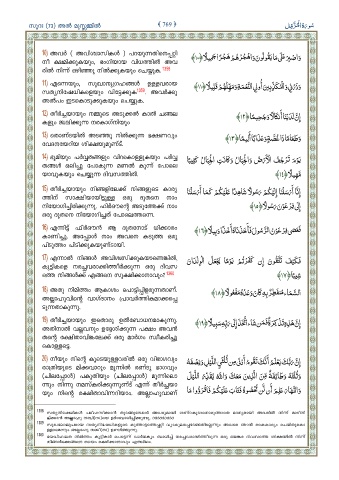 സൂറ (73) അൽ മുസ്സമ്മിൽ
﴾ 769 ﴿
سورة المزمل
10) അവർ ( അവിശ്വാസികൾ ) പറയുന്നതിനെപ്പറ്റി
നീ ക്ഷമിക്കുകയും, ഭംഗിയായ വിധത്തിൽ അവ
രിൽ നിന്ന് ഒഴിഞ്ഞു നിൽക്കുകയും ചെയ്യുക.
وَاصْبِرْ عَلَىٰ مَا يَقُولُونَ وَاهْجُرْهُمْ هَجْرًا جَمِيلًا ﴿١٠﴾
11) എന്നെയും, സുഖാനുഗ്രഹങ്ങൾ ഉള്ളവരായ
സത്യനിഷേധികളെയും വിട്ടേക്കുക. അവർക്കു
അൽപം ഇടകൊടുക്കുകയും ചെയ്യുക.
وَذَرْنِي وَالْمُكَذِّبِينَ أُولِي النَّعْمَةِ وَمَهِّلْهُمْ قَلِيلًا ﴿١١﴾
12) തീർച്ചയായും നമ്മുടെ അടുക്കൽ കാൽ ചങ്ങല
കളും ജ്വലിക്കുന്ന നരകാഗ്നിയും
إِنَّ لَدَيْنَا أَنكَالًا وَجَحِيمًا ﴿١٢﴾
13) തൊണ്ടയിൽ അടഞ്ഞു നിൽക്കുന്ന ഭക്ഷണവും
വേദനയേറിയ ശിക്ഷയുമുണ്ട്.
وَطَعَامًا ذَا غُصَّةٍ وَعَذَابًا أَلِيمًا ﴿١٣﴾
14) ഭൂമിയും പർവ്വതങ്ങളും വിറകൊള്ളുകയും പർവ്വ
തങ്ങൾ ഒലിച്ചു പോകുന്ന മണൽ കുന്ന് പോലെ
യാവുകയും ചെയ്യുന്ന ദിവസത്തിൽ.
يَوْمَ تَرْجُفُ الْأَرْضُ وَالْجِبَالُ وَكَانَتِ الْجِبَالُ كَثِيبًا
مَّهِيلًا ﴿١٤﴾
15) തീർച്ചയായും നിങ്ങളിലേക്ക് നിങ്ങളുടെ കാര്യ
ത്തിന് സാക്ഷിയായിട്ടുള്ള ഒരു ദൂതനെ നാം
നിയോഗിച്ചിരിക്കുന്നു. ഫിർഔന്റെ അടുത്തേക്ക് നാം
ഒരു ദൂതനെ നിയോഗിച്ചത് പോലെത്തന്നെ.
إِنَّا أَرْسَلْنَا إِلَيْكُمْ رَسُولًا شَاهِدًا عَلَيْكُمْ كَمَا أَرْسَلْنَا
إِلَىٰ فِرْعَوْنَ رَسُولًا ﴿١٥﴾
16) എന്നിട്ട് ഫിർഔൻ ആ ദൂതനോട് ധിക്കാരം
കാണിച്ചു. അപ്പോൾ നാം അവനെ കടുത്ത ഒരു
പിടുത്തം പിടിക്കുകയുണ്ടായി.
فَعَصَىٰ فِرْعَوْنُ الرَّسُولَ فَأَخَذْنَاهُ أَخْذًا وَبِيلًا ﴿١٦﴾
17) എന്നാൽ നിങ്ങൾ അവിശ്വസിക്കുകയാണെങ്കിൽ,
കുട്ടികളെ നരച്ചവരാക്കിത്തീർക്കുന്ന ഒരു ദിവസ
ത്തെ നിങ്ങൾക്ക് എങ്ങനെ സൂക്ഷിക്കാനാവും?
فَكَيْفَ تَتَّقُونَ إِن كَفَرْتُمْ يَوْمًا يَجْعَلُ الْوِلْدَانَ
شِيبًا ﴿١٧﴾
18) അതു നിമിത്തം ആകാശം പൊട്ടിപ്പിളരുന്നതാണ്.
അല്ലാഹുവിന്റെ വാഗ്ദാനം പ്രാവർത്തികമാക്കപ്പെ
ടുന്നതാകുന്നു.
السَّمَاءُ مُنفَطِرٌ بِهِ كَانَ وَعْدُهُ مَفْعُولًا ﴿١٨﴾
19) തീർച്ചയായും ഇതൊരു ഉൽബോധനമാകുന്നു.
അതിനാൽ വല്ലവനും ഉദ്ദേശിക്കുന്ന പക്ഷം അവൻ
തന്റെ രക്ഷിതാവിങ്കലേക്ക് ഒരു മാർഗം സ്വീകരിച്ചു
കൊള്ളട്ടെ.
إِنَّ هَٰذِهِ تَذْكِرَةٌ فَمَن شَاءَ اتَّخَذَ إِلَىٰ رَبِّهِ سَبِيلًا ﴿١٩﴾
20) നീയും നിന്റെ കൂടെയുള്ളവരിൽ ഒരു വിഭാഗവും
രാത്രിയുടെ മിക്കവാറും മൂന്നിൽ രണ്ടു ഭാഗവും
(ചിലപ്പോൾ) പകുതിയും (ചിലപ്പോൾ) മൂന്നിലൊ
ന്നും നിന്നു നമസ്കരിക്കുന്നുണ്ട് എന്ന് തീർച്ചയാ
യും നിന്റെ രക്ഷിതാവിന്നറിയാം. അല്ലാഹുവാണ്
إِنَّ رَبَّكَ يَعْلَمُ أَنَّكَ تَقُومُ أَدْنَىٰ مِن ثُلُثَيِ اللَّيْلِ وَنِصْفَهُ
وَثُلُثَهُ وَطَائِفَةٌ مِّنَ الَّذِينَ مَعَكَ وَاللَّهُ يُقَدِّرُ اللَّيْلَ
وَالنَّهَارَ عَلِمَ أَن لَّن تُحْصُوهُ فَتَابَ عَلَيْكُمْ فَاقْرَءُوا مَا